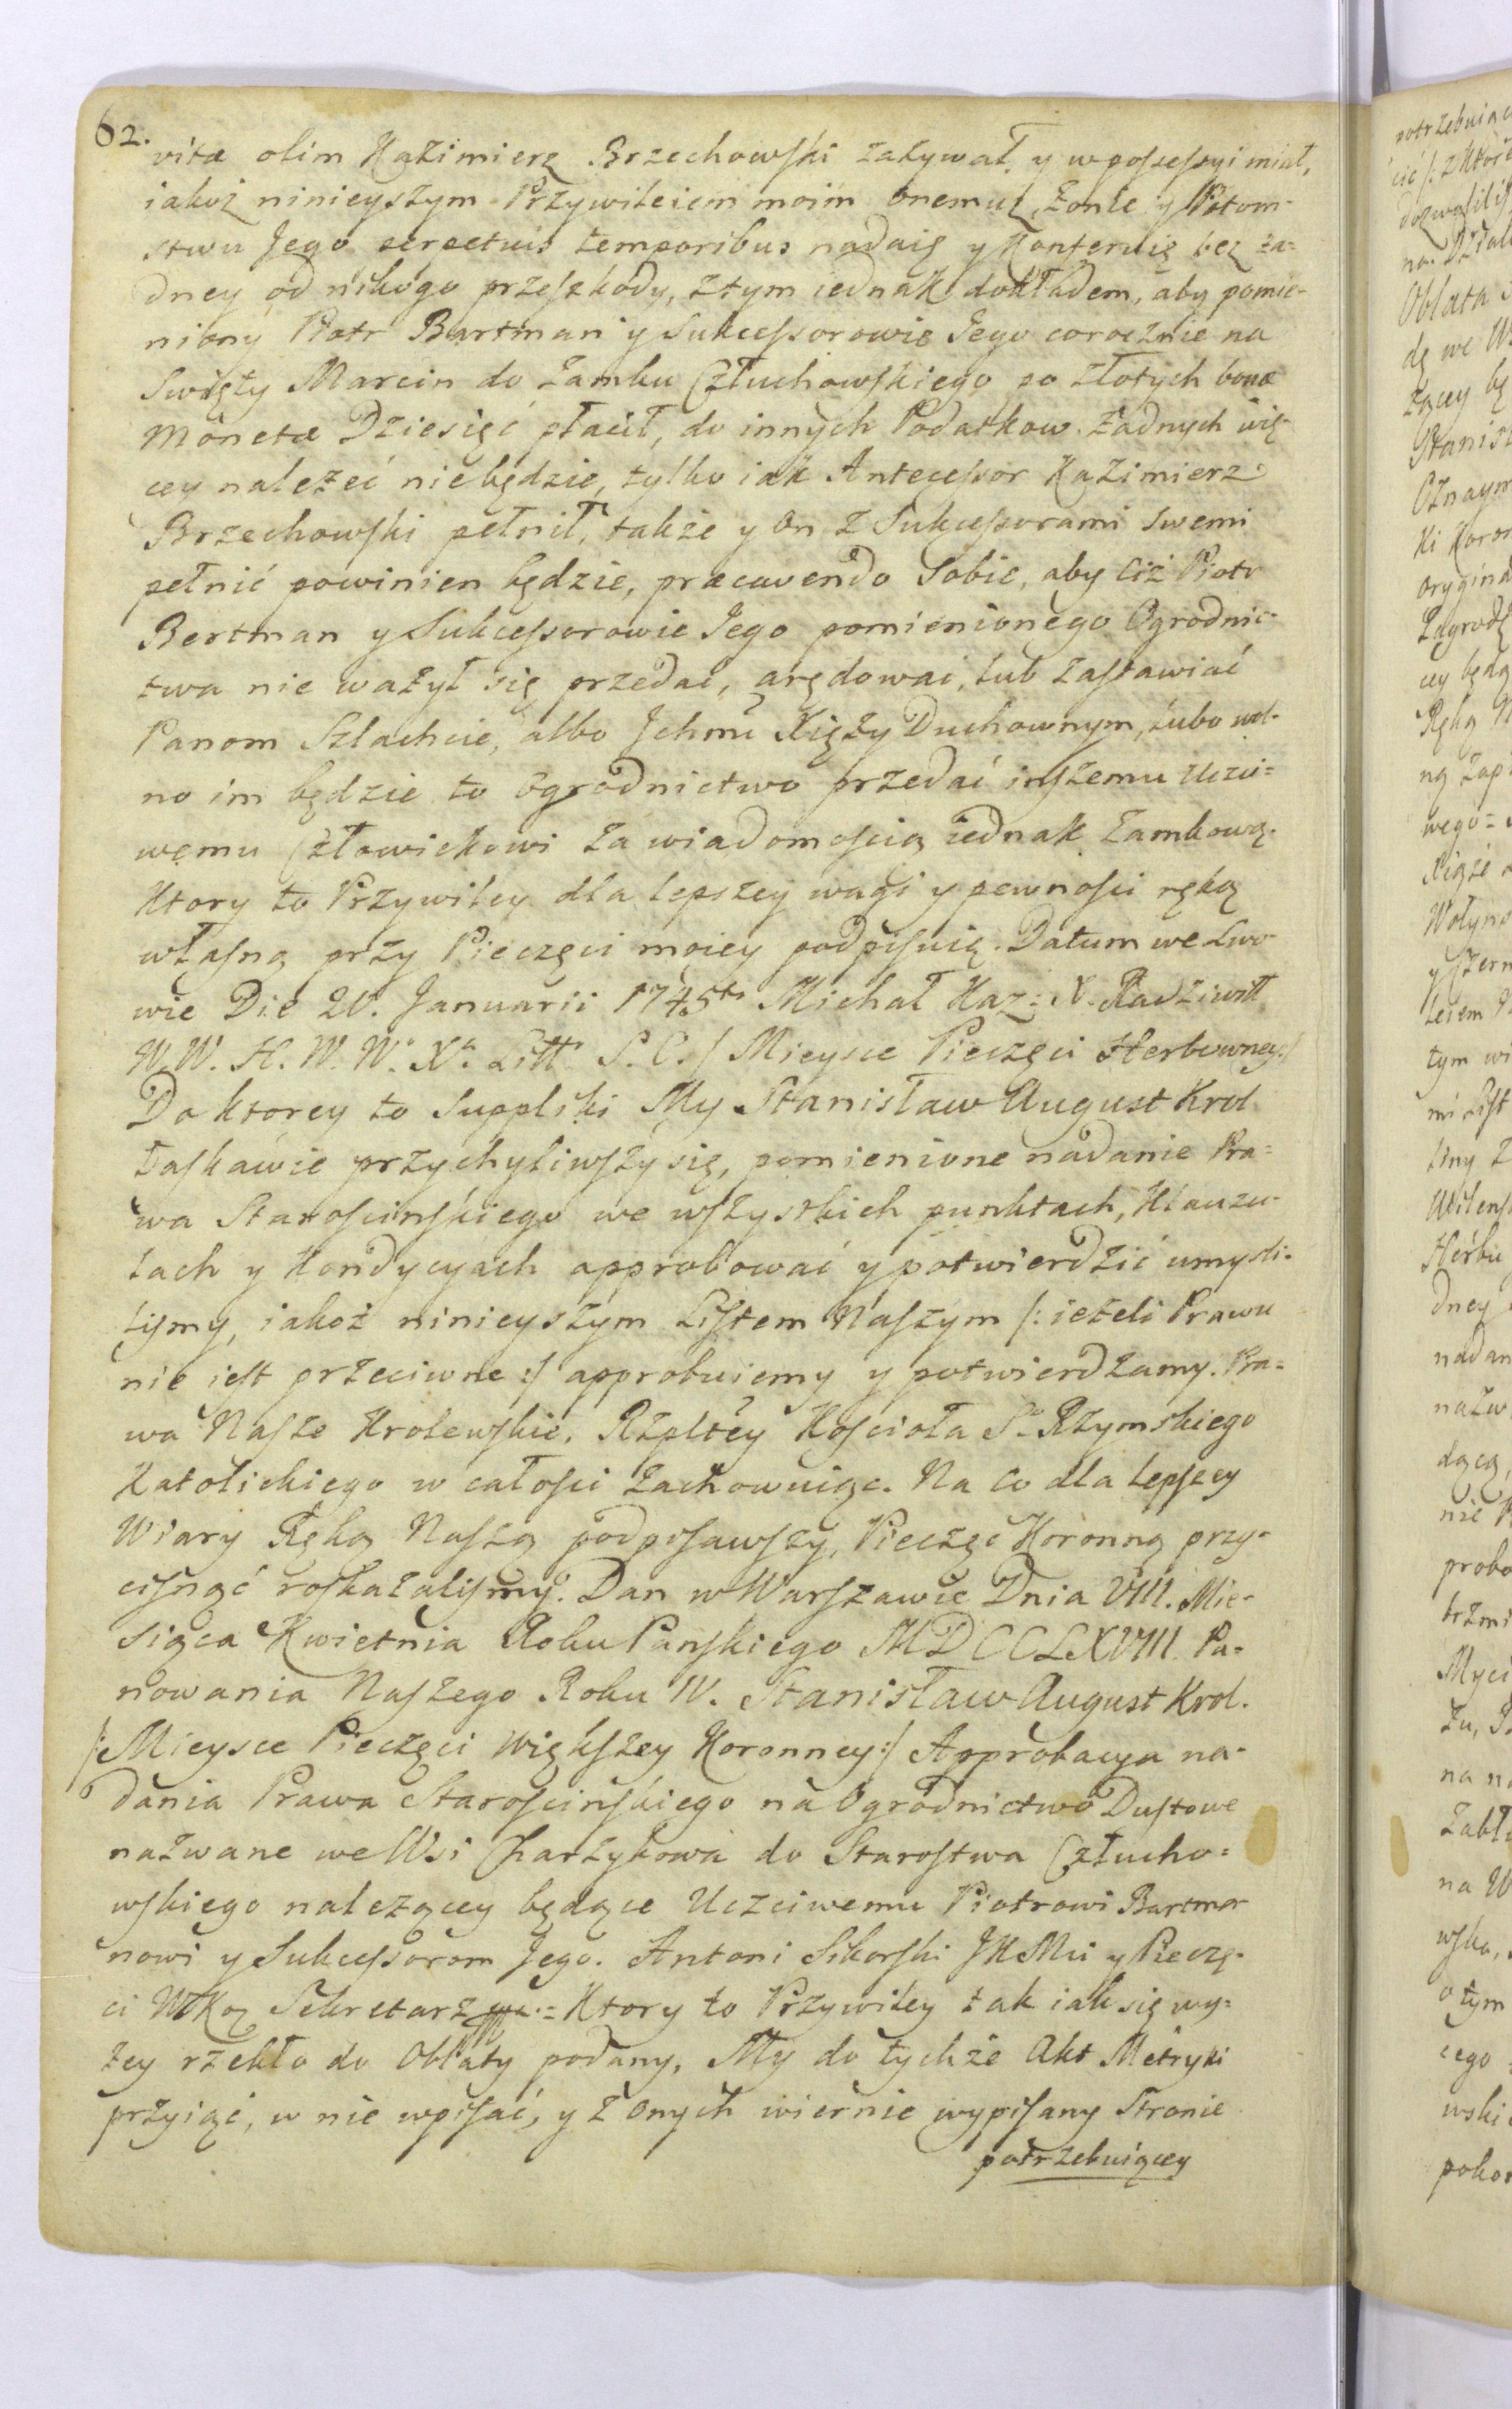 62.
vitæ olim Kaźimierz Brzechowski zażywał, y w possessyi miał,
iakoż ninieyszym Przywileiem moim onemuż, Żonie y Potom-
stwu Jego perpetuis temporibus nadaię y Konferuię bez ża-
dney od nikogo przeszkody, z tym iednak dokładem, aby pomie-
niony Piotr Bartman y Sukcessorowie Jego corocznie na
Swięty Marcin do Zamku Człuchowskiego po złotych bonæ
Monetæ Dziesięć płacił, do innych Podatkow żadnych wię-
cey należeć nie będzie, tylko iak Antecessor Kaźimierz
Brzechowski pełnił, także y on z Sukcessorami swemi
pełnić powinien będzie, præcavendo sobie, aby ciż Piotr
Bertman y Sukcessorowie Jego pomienionego Ogrodnic-
twa nie ważył się przedać, arędować, lub zastawiać
Panom Szlachcie, albo Jchmć Xięży Duchownym, lubo wol-
no im będzie to Ogrodnictwo przedać inszemu Uczci=
wemu Człowiekowi za wiadomoscią iednak Zamkową.
Ktory to Przywiley dla lepszey wagi y pewnosci ręką
własną przy Pieczęci moiey podpisuię. Datum we Lwo-
wie Die 20. Januarii 1745to Michał Kaz: X. Radziwiłł
W. W. H. W. W. Xa. Litt. S. C. / Mieysce Pieczęci Herbowney:/
Do ktorey to Suppliki My Stanisław August Krol
łaskawie przychyliwszy się, pomienione nadanie Pra=
wa Staroscinskiego we wszystkich punktach, Klauzu-
lach y Kondycyach approbować y potwierdzić umysli-
lismy, iakoż ninieyszym Listem Naszym /: ieżeli Prawu
nie iest przeciwne :/ approbuiemy y potwierdzamy. Pra=
wa Nasze Krolewskie, Rzpltey Kościoła So Rzymskiego
Katolickiego w całosci zachowuiąc. Na co dla lepszey
Wiary Ręką Naszą podpisawszy, Pieczęć Koronną przy-
cisnąć roskazalismy. Dan w Warszawie Dnia VIII. Mie-
siąca Kwietnia Roku Panskiego MDCCLXVIII. Pa-
nowania Naszego Roku IV. Stanisław August Krol.
/: Mieysce Pieczęci Większey Koronney :/ Approbacya na-
dania Prawa Staroscinskiego na Ogrodnictwo Dustowe
nazwane we Wsi Charzykowa do Starostwa Człucho=
wskiego należącey będące Uczciwemu Piotrowi Bartma-
nowi y Sukcessorom Jego. Antoni Sikorski JKMci y Pieczę-
ci WKoy Sekretarz = Ktory to Przywiley tak iak się wy=
żey rzekło do Oblaty podany, My do tychże Akt Metryki
przyiąć, w nie wpisać, y z onych wiernie wypisany Stronie
potrzebuiącey